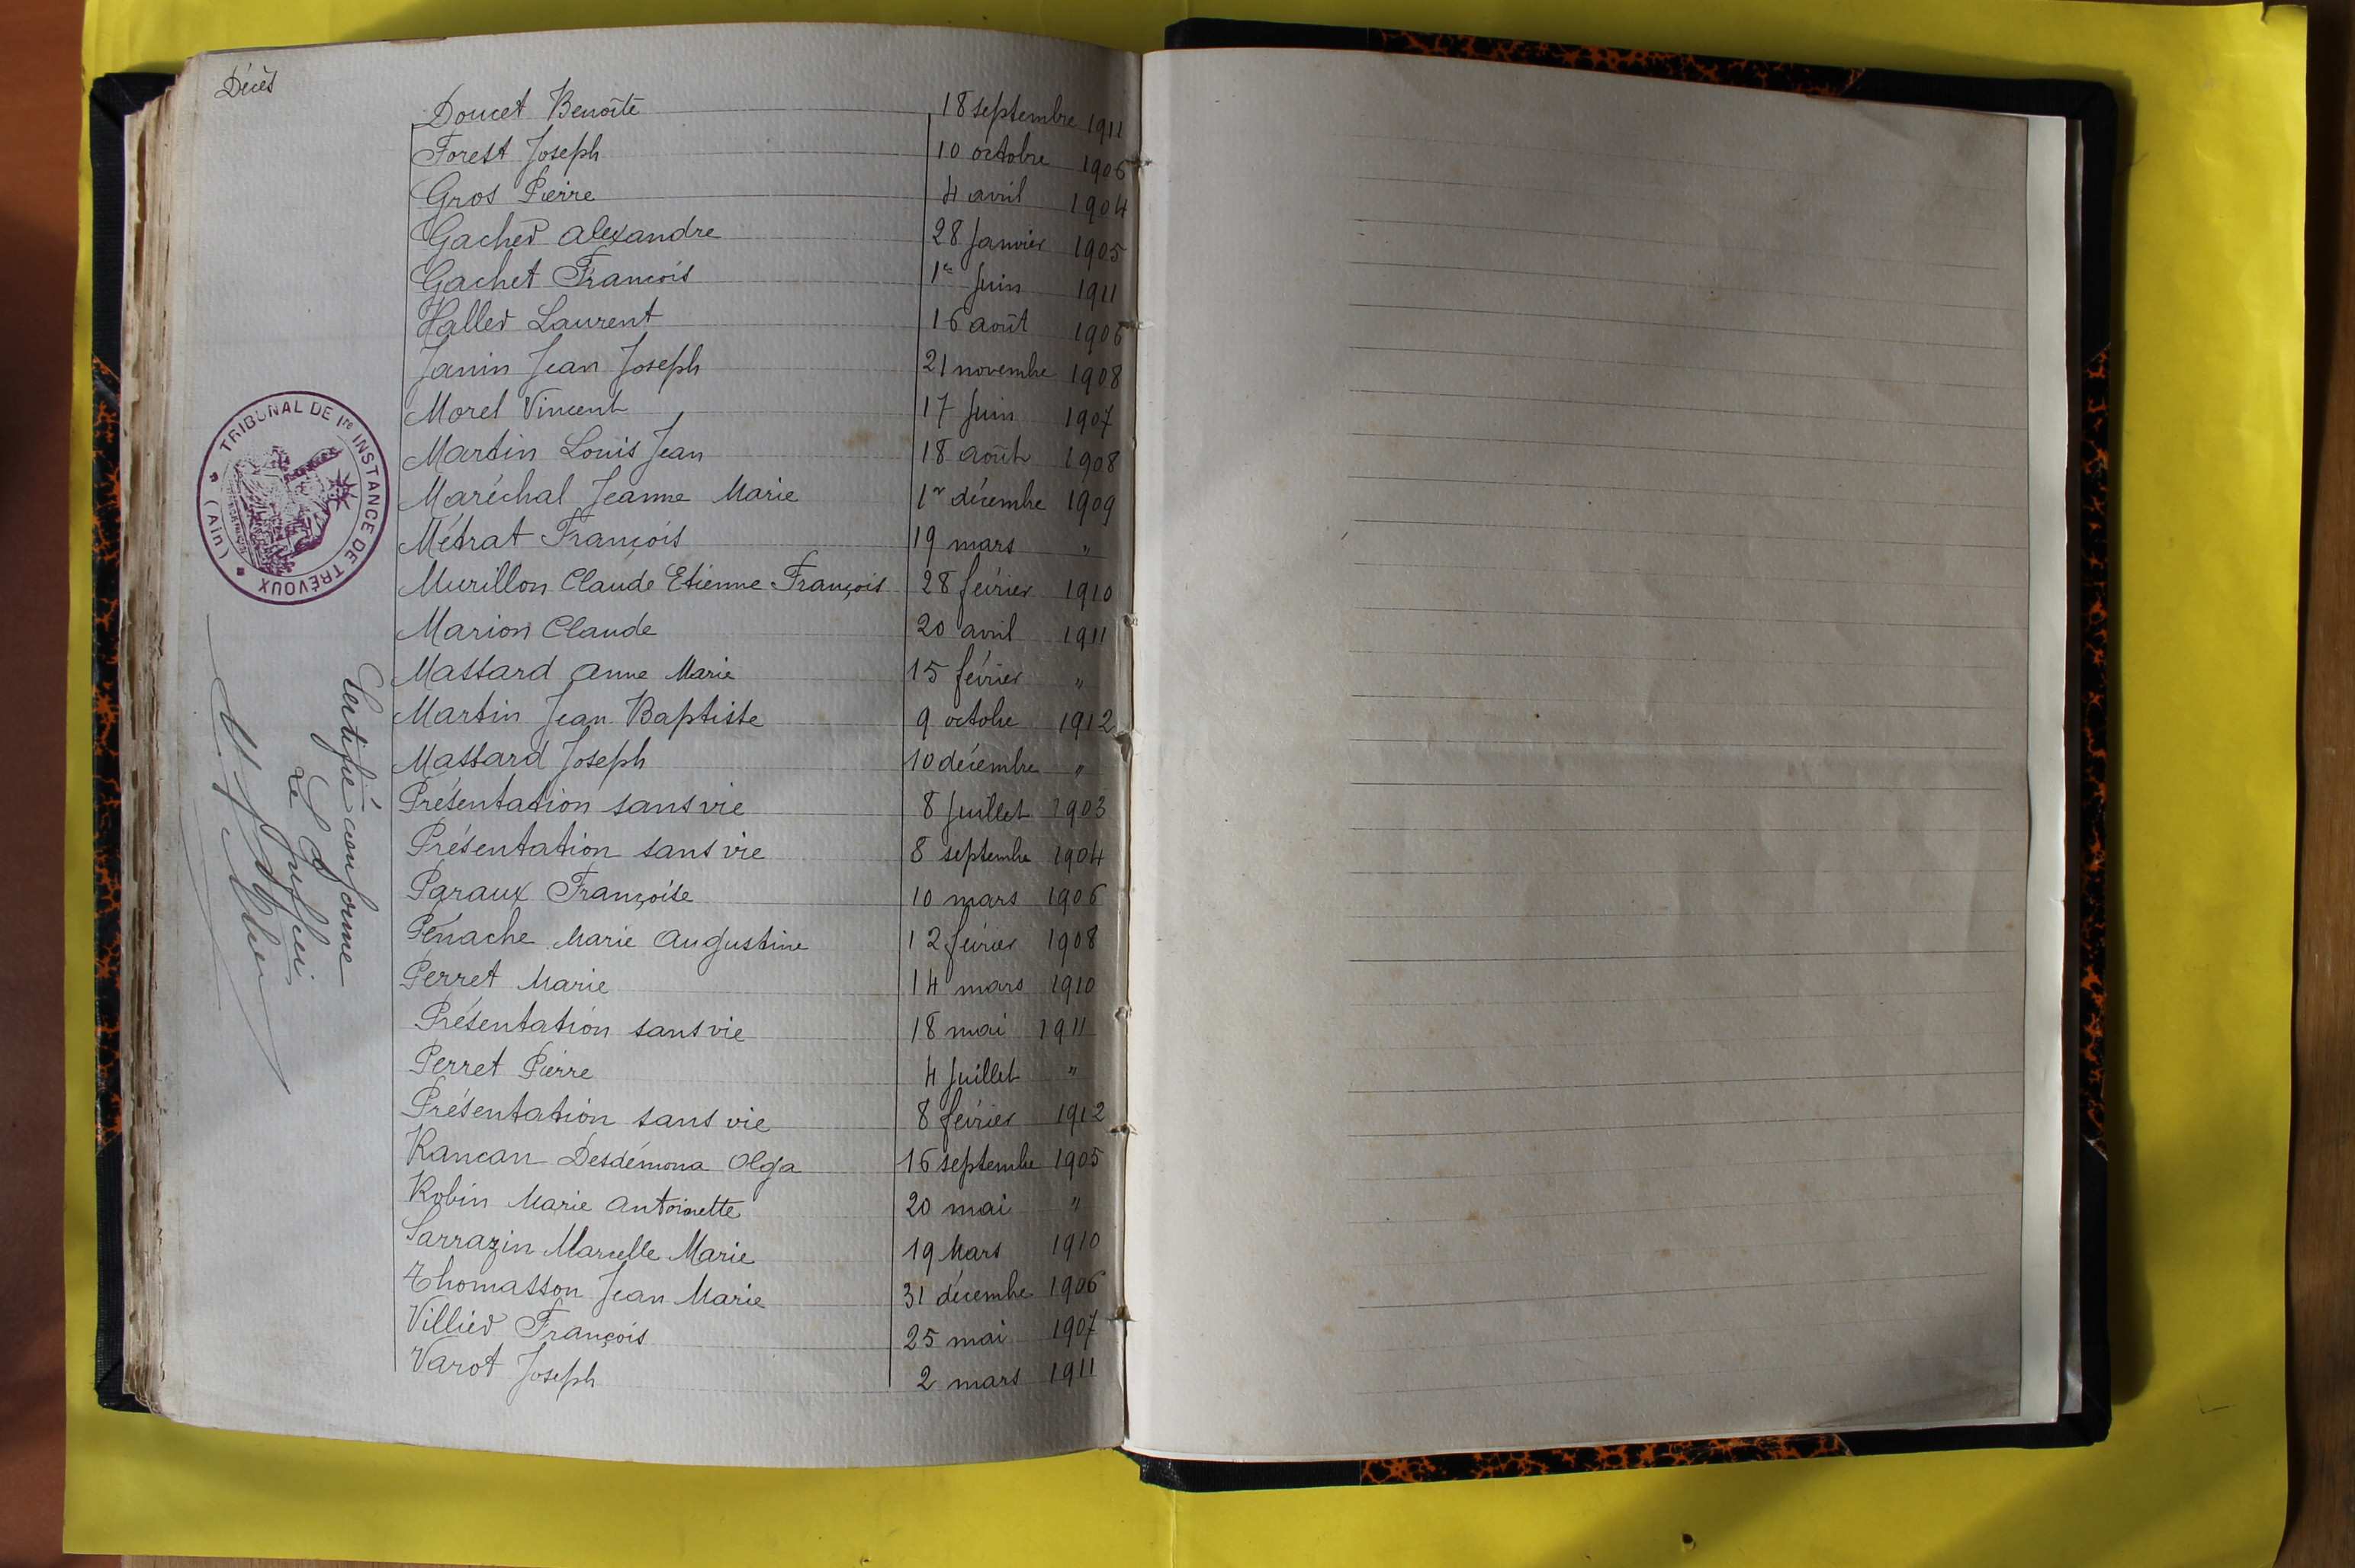 Décès
Doucet Benoîte 18 septembre 1911
Forest Joseph 10 octobre 1906
Gros Pierre 4 avril 1904
Gacher Alexandre 28 Janvier 1905
Gachet François 1er Juin 1911
Haller Laurent 16 août 1906
Janin Jean Joseph 21 novembre 1908
Morel Vincent 17 Juin 1907
Martin Louis Jean 18 août 1908
Maréchal Jeanne Marie 1er décembre 1909
Métrat François 19 mars "
Murillon Claude Etienne François 28 février 1910
Marion Claude 20 avril 1911
Massard Anne Marie 15 février "
Martin Jean Baptiste 9 octobre 1912
Massard Joseph 10 décembre "
Présentation sans vie 8 Juillet 1903
Présentation sans vie 8 septembre 1904
Paraux Françoise 10 mars 1906
Penache Marie Augustine 12 février 1908
Perret Marie 14 mars 1910
Présentation sans vie 18 mai 1911
Perret Pierre 4 Juillet "
Présentation sans vie 8 février 1912
Rancan Desdémona Olga 16 septembre 1905
Robin Marie Antoinette 20 mai "
Sarrazin Marcelle Marie 19 Mars 1910
Thomasson Jean Marie 31 décembre 1906
Villier François 25 mai 1907
Varot Joseph 2 mars 1911
TRIBUNAL DE 1re INSTANCE DE TRÉVOUX
(Ain)
Certifié conforme
Le Greffier